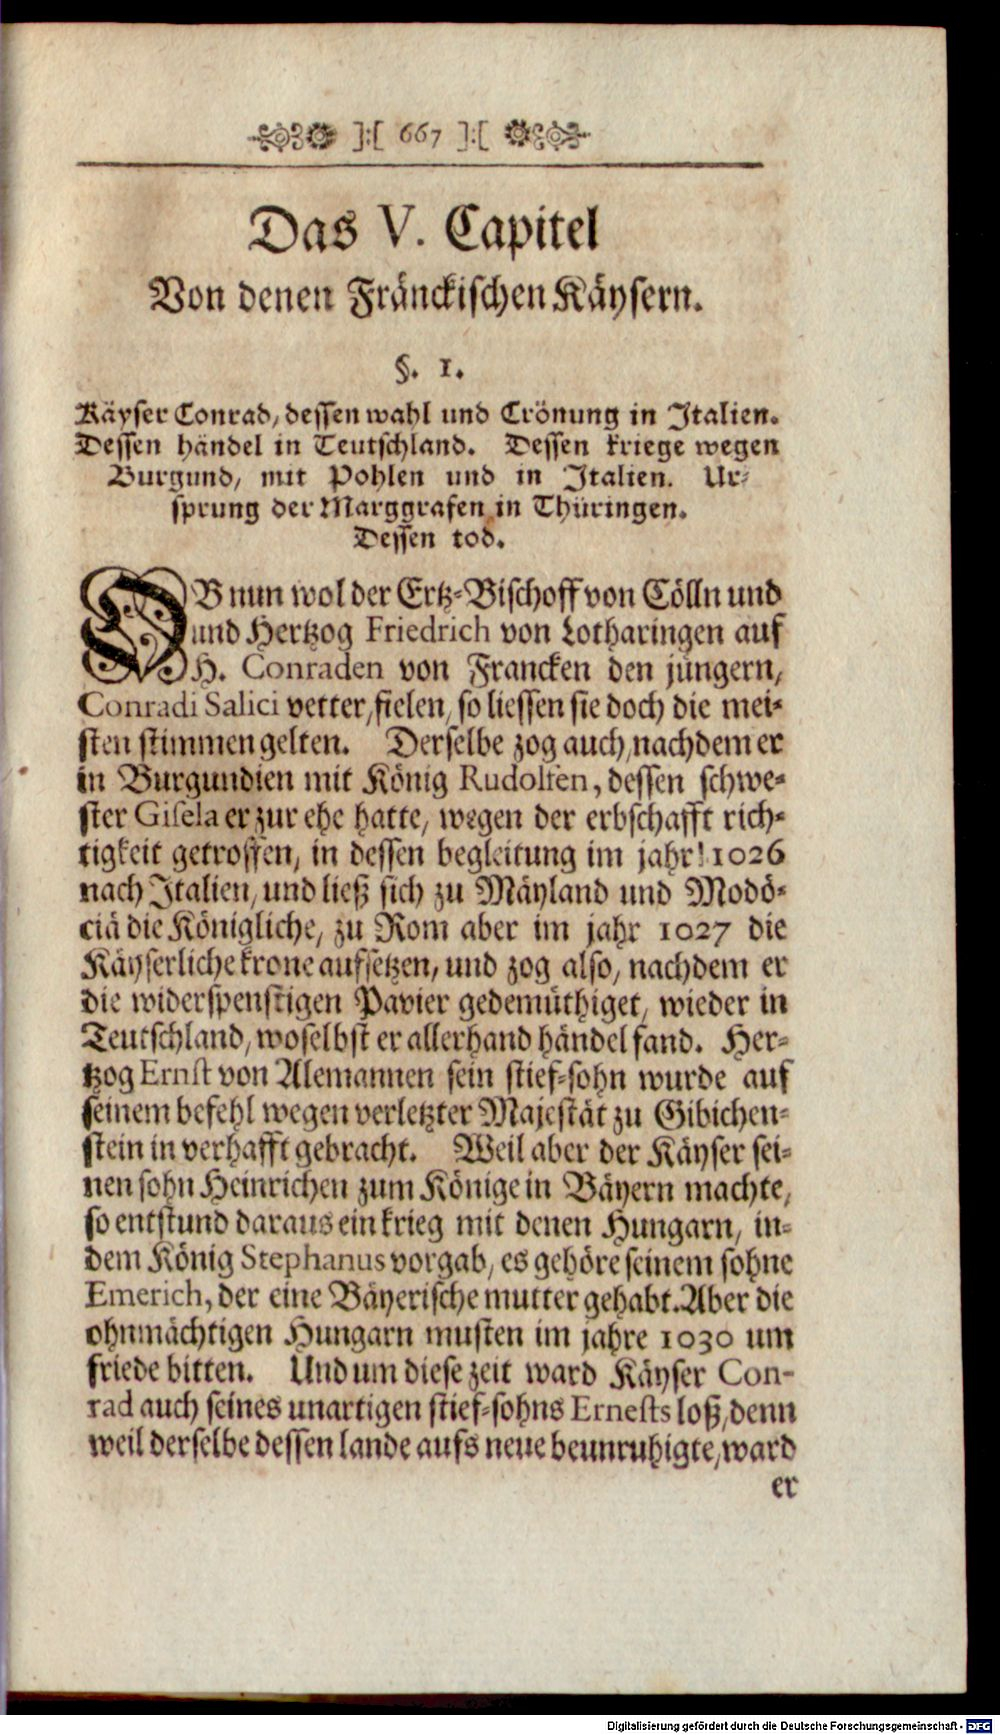 ]:[ 667 ]:[
Das V. Capitel
Von denen Fränckischen Käysern.
§. 1.
Käyser Conrad, dessen wahl und Crönung in Italien.
Dessen händel in Teutschland. Dessen kriege wegen
Burgund, mit Pohlen und in Italien. Ur-
sprung der Marggrafen in Thüringen.
Dessen tod.
OB nun wol der Ertz-Bischoff von Cölln und
und Hertzog Friedrich von Lotharingen auf
H. Conraden von Francken den jüngern,
Conradi Salici vetter, fielen, so liessen sie doch die mei-
sten stimmen gelten. Derselbe zog auch, nachdem er
in Burgundien mit König Rudolfen, dessen schwe-
ster Gisela er zur ehe hatte, wegen der erbschafft rich-
tigkeit getroffen, in dessen begleitung im jahr 1026
nach Italien, und ließ sich zu Mäyland und Modö-
ciä die Königliche, zu Rom aber im jahr 1027 die
Käyserliche krone aufsetzen, und zog also, nachdem er
die widerspenstigen Pavier gedemüthiget, wieder in
Teutschland, woselbst er allerhand händel fand. Her-
tzog Ernst von Alemannen sein stief-sohn wurde auf
seinem befehl wegen verletzter Majestät zu Gibichen-
stein in verhafft gebracht. Weil aber der Käyser sei-
nen sohn Heinrichen zum Könige in Bäyern machte,
so entstund daraus ein krieg mit denen Hungarn, in-
dem König Stephanus vorgab, es gehöre seinem sohne
Emerich, der eine Bäyerische mutter gehabt. Aber die
ohnmächtigen Hungarn musten im jahre 1030 um
friede bitten. Und um diese zeit ward Käyser Con-
rad auch seines unartigen stief-sohns Ernests loß, denn
weil derselbe dessen lande aufs neue beunruhigte, ward
er
Digitalisierung gefördert durch die Deutsche Forschungsgemeinschaft - DFG